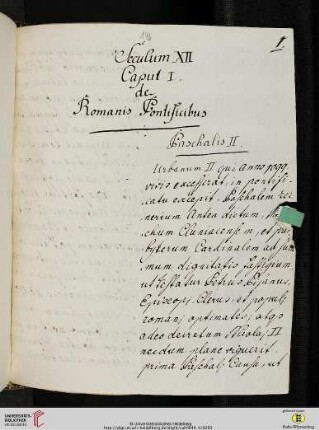 1.
Seculum XII
Caput I.
de
Romanis Pontificibus
Paschalis II
Urbanum II qui Anno 1099
vivis excesserat, in pontifi-
catu excepit Paschalem
nerium Antea dictum,
chum Cluniacensem, et
byterum Cardinalem ad
mum dignitatis fastigium
ut testatur Petrus Pisanus,
Episcopi, Clerus, et populi
romani optimates, atqe
adeo decretum Nicolai II
necdum plane viguerit
prima Paschali cura, ut
UNIVERSITÄTS-
BIBLIOTHEK
HEIDELBERG
© Universitätsbibliothek Heidelberg